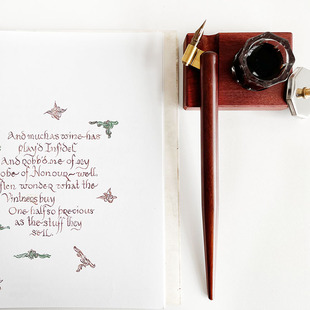 And much as wine has
play'd Infidel
And robb'd me of my
obe of Honour—well
ften wonder what the
Vintners buy
One half so precious
as the stuff they
sell.